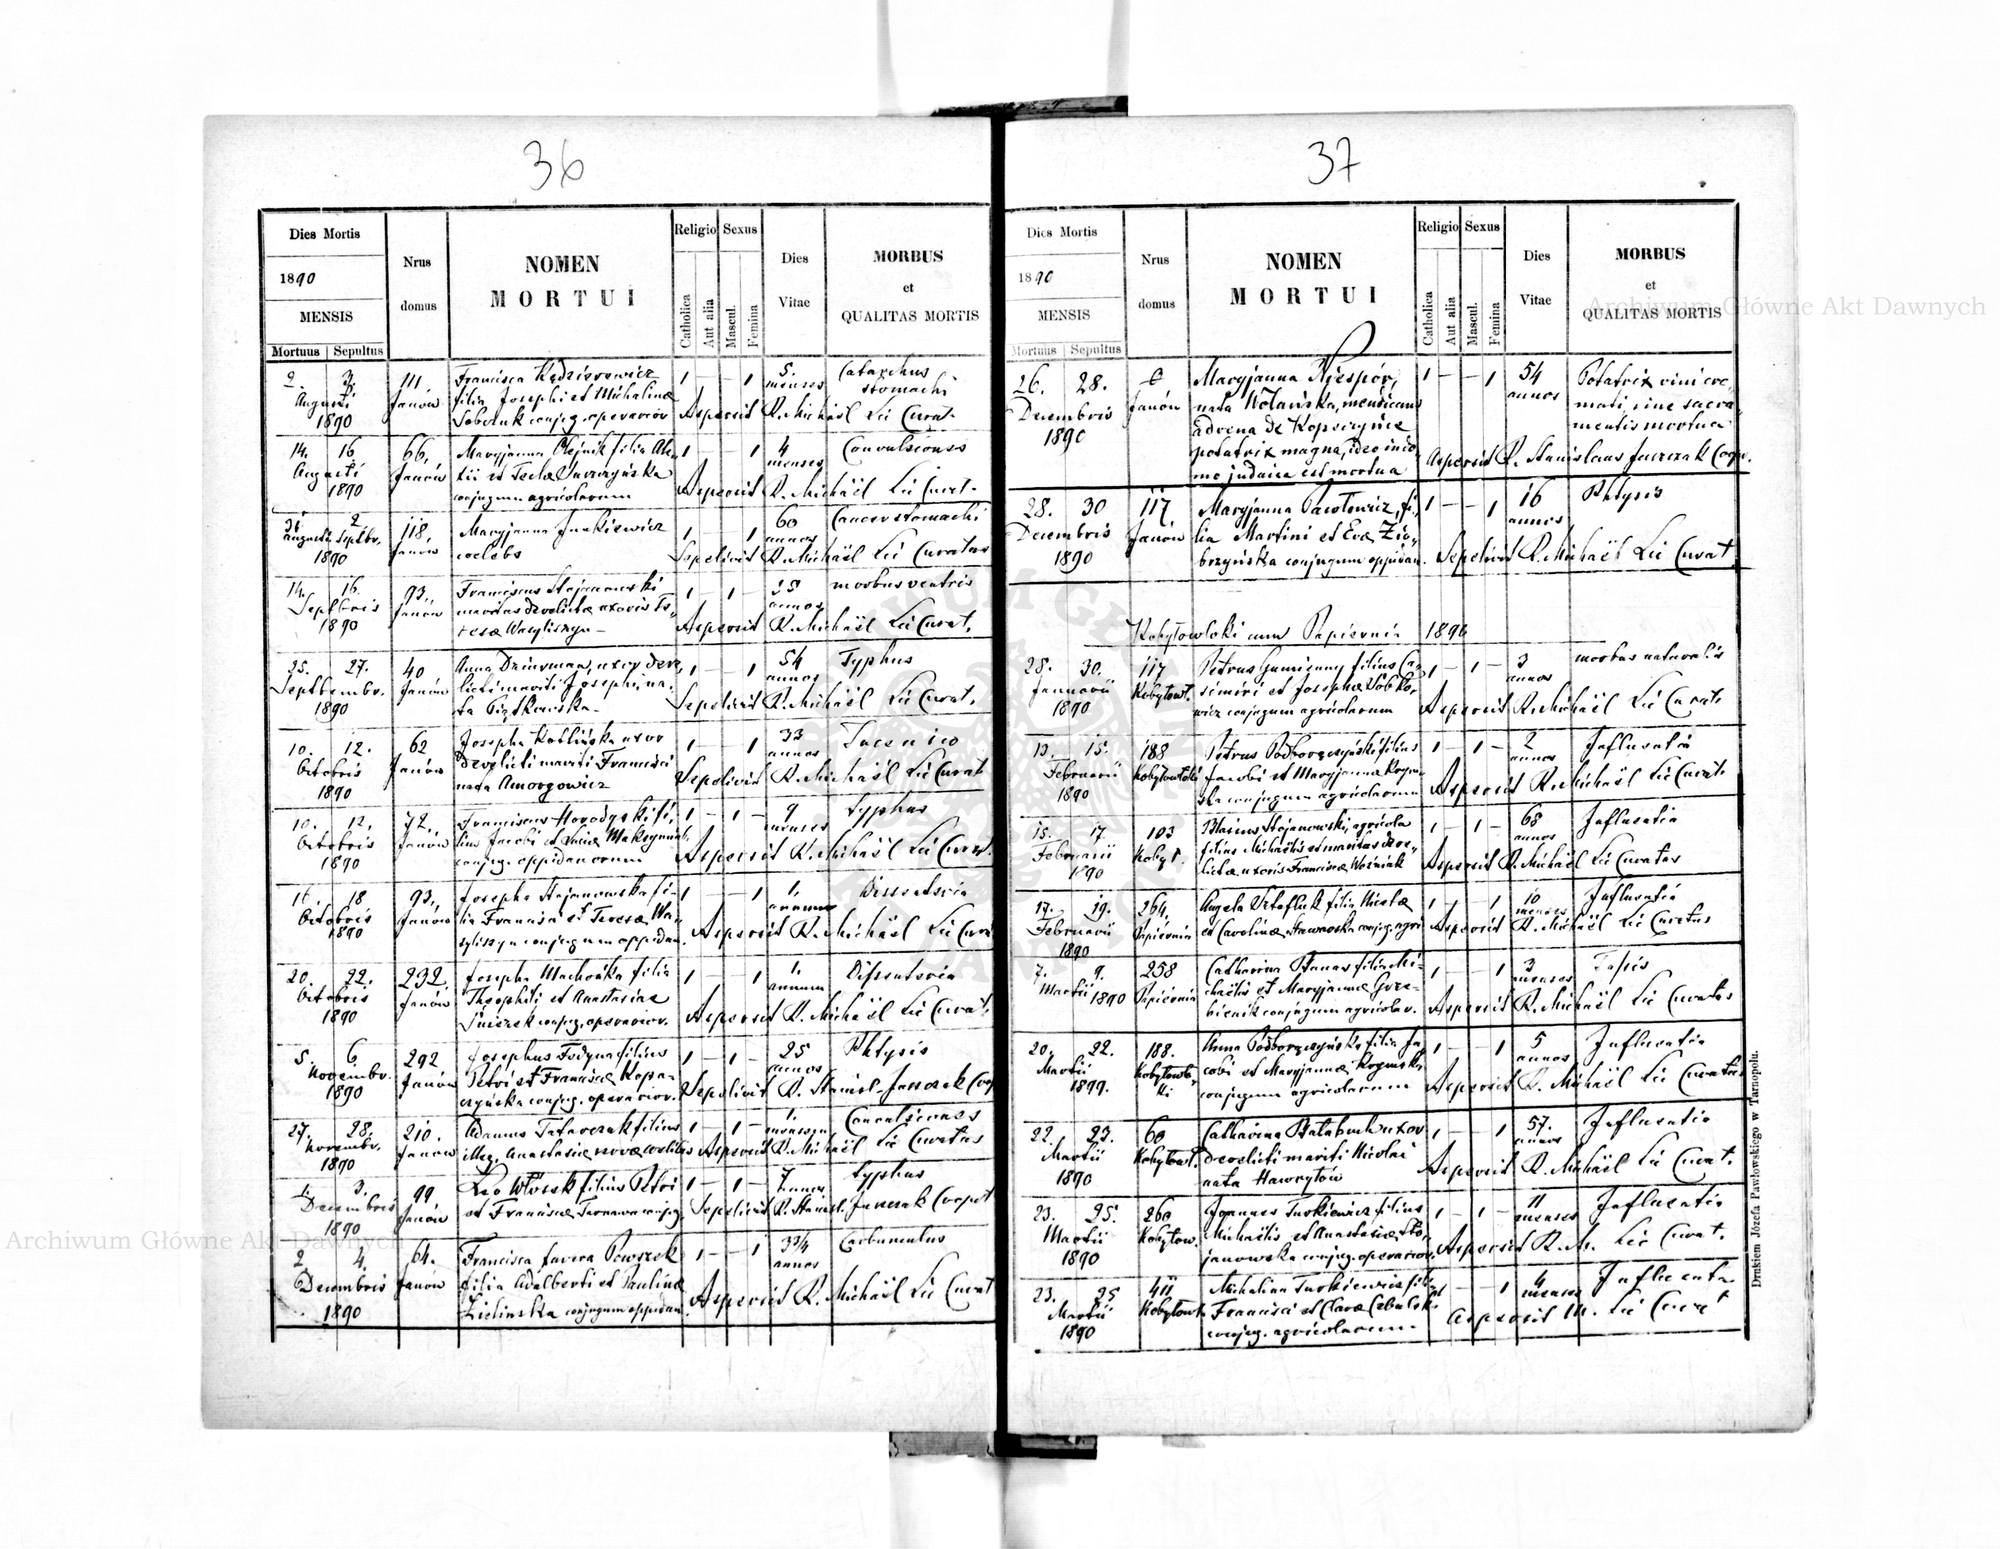 36
Dies Mortis
1890
MENSIS
Mortuus Sepultus
Nrus
domus
NOMEN
MORTUI
Religio
Catholica
Aut alia
Sexus
Mascul.
Femina
Dies
Vitae
MORBUS
et
QUALITAS MORTIS
2. 3. Augusti 1890
111 Janów
Francisca Kędzierowicz
filia Josephi et Michalinae
Sobczuk conjug. operarior
1 — — 1
5. menses
Catarrhus
stomachi
Aspersit R. Michaël Lić Curat.
14. 16 Augusti 1890
66. Janów
Maryjanna Olejnik filia
et Teclae
conjugum agricolarum
1 — — 1
4 menses
Convulsiones
Aspersit R. Michaël Lić Curat.
31 Augusti 2. Septbr. 1890
118, Janów
Maryjanna Jackiewicz
coelebs
1 — — 1
60 annos
Cancer stomachi
Sepelivit R. Michaël Lić Curatus
14. 16. Septbris 1890
93. Janów
Franciscus Stojanowski
maritus derelictae uxoris Te-
resae Wasyliszyn
1 — 1 —
annos
morbus ventris
Aspersit R. Michaël Lić Curat.
25. 27. Septembr. 1890
40 Janów
Anna uxor dere-
licti mariti Josephi, na-
ta Piątkowska
1 — — 1
54 annos
Typhus
Sepelivit R. Michaël Lić Curat.
10. 12. Octobris 1890
62 Janów
Josepha Kotlińska uxor
derelicti mariti Francisci
nata Amorgowicz
1 — — 1
33 annos
Sepelivit R. Michaël Lić Curat
10. 12. Octobris 1890
72. Janów
Franciscus Horodyski fi-
lius Jacobi et
conjug. oppidanorum
1 — 1 —
9 menses
typhus
Aspersit R. Michaël Lić Curat.
16. 18 Octobris 1890
93. Janów
Josepha Stojanowska fi-
lia Francisci et Teresae Wa-
syliszyn conjugum oppidan.
1 — — 1
1. annum
Dissenteria
Aspersit R. Michaël Lić Curat
20. 22. Octobris 1890
232. Janów
Josepha Machowska filia
Theophili et Anastasiae
Śnieżek conjug. operarior.
1 — — 1
1. annum
Dissenteria
Aspersit R. Michaël Lić Curat.
5 6 Novembr. 1890
292 Janów
Josephus Fedyna filius
Petri et Franciscae Kopa-
czyńska conjug. operarior.
1 — 1 —
25 annos
Phtysis
Sepelivit R. Stanisl. Jenczak Coop
27. 28. Novembr. 1890
210. Janów
Adamus Tatarczuk filius
illeg. Anastasiae
1 — 1 —
Convulsiones
Aspersit R. Michaël Lić Curatus
1. 3. Decembris 1890
99. Janów
Leo Włosek filius Petri
et Franciscae Tarnawa conjug.
1 — 1 —
7. annos
typhus
Sepelivit R. Stanisl. Jenczak Cooper
2 4. Decembris 1890
64. Janów
Francisca
filia Adalberti et Paulinae
Zielinska conjugum oppidan.
1 — — 1
3 3/4 annos
Carbunculus
Aspersit R. Michaël Lić Curat
37
Dies Mortis
1890
MENSIS
Mortuus Sepultus
Nrus
domus
NOMEN
MORTUI
Religio
Catholica
Aut alia
Sexus
Mascul.
Femina
Dies
Vitae
MORBUS
et
QUALITAS MORTIS
26. 28. Decembris 1890
Janów
Maryjanna Njespór,
nata Wolańska, mendicans
advena de Kopyczyńce
potatrix magna, ideo in do-
mo judaica est mortua
1 — — 1
54 annos
Potatrix vini cre-
mati, sine sacra-
mentis mortua
Aspersit R. Stanislaus Jenczak Coop.
28. 30 Decembris 1890
117 Janów
Maryjanna Pawłowicz, fi-
lia Martini et Evae Zio-
brzyńska conjugum oppidan.
1 — — 1
16 annos
Phtysis
Sepelivit R. Michaël Lić Curat.
Kobyłowłoki cum Papiernia 1890
28. 30. Januarii 1890
117 Kobyłowł.
Petrus Gumienny filius Ca-
simiri et Josephae Sobko-
wicz conjugum agricolarum
1 — 1 —
3 annos
morbus naturalis
Aspersit R. Michaël Lić Curat.
13. 15. Februarii 1890
188 Kobyłowłoki
Petrus Podborączyński filius
Jacobi et Maryjannae
conjugum agricolarum
1 — 1 —
2 annos
Influentia
Aspersit R. Michaël Lić Curat.
15. 17 Februarii 1890
103 Kobył.
Blasius Stojanowski, agricola
filius Michaëlis et maritus dere-
lictae uxoris Franciscae Woźniak
1 — 1 —
68 annos
Influentia
Aspersit R. Michaël Lić Curatus
17. 19. Februarii 1890
264. Papiernia
Angela filia Nicolai
et Carolinae conjug. agri
1 — — 1
10 menses
Influentia
Aspersit R. Michaël Lić Curatus
7. 9. Martii 1890
258 Papiernia
Catharina Banas filia Mi-
chaëlis et Maryjannae Grze-
bienik conjugum agricolar.
1 — — 1
3 menses
Tussis
Aspersit R. Michaël Lić Curatus
20. 22. Martii 1899.
188. Kobyłowło-
ki
Anna Podborączyńska filia Ja-
cobi et Maryjannae
conjugum agricolarum
1 — — 1
5 annos
Influentia
Aspersit R. Michaël Lić Curatus
22. 23. Martii 1890
60 Kobyłowł.
Catharina Bałabuch uxor
derelicti mariti Nicolai
nata Hawryłów
1 — — 1
57. annos
Influentia
Aspersit R. Michaël Lić Curat.
23. 25. Martii 1890
260 Kobyłow.
Joannes Turkiewicz filius
Michaëlis et Anastasiae Sto-
janowska conjug. operarior.
1 — 1 —
11 menses
Influentia
Aspersit R. M. Lić Curat.
23. 25 Martii 1890
411 Kobyłowł.
Michalina Turkiewicz filia
Francisci et Clarae Cebulsk
conjug. agricolarum
— — 1
4 menses
Influenta
Aspersit M. Lić Curat
Drukiem Józefa Pawłowskiego w Tarnopolu.
Archiwum Główne Akt Dawnych
Archiwum Główne Akt Dawnych